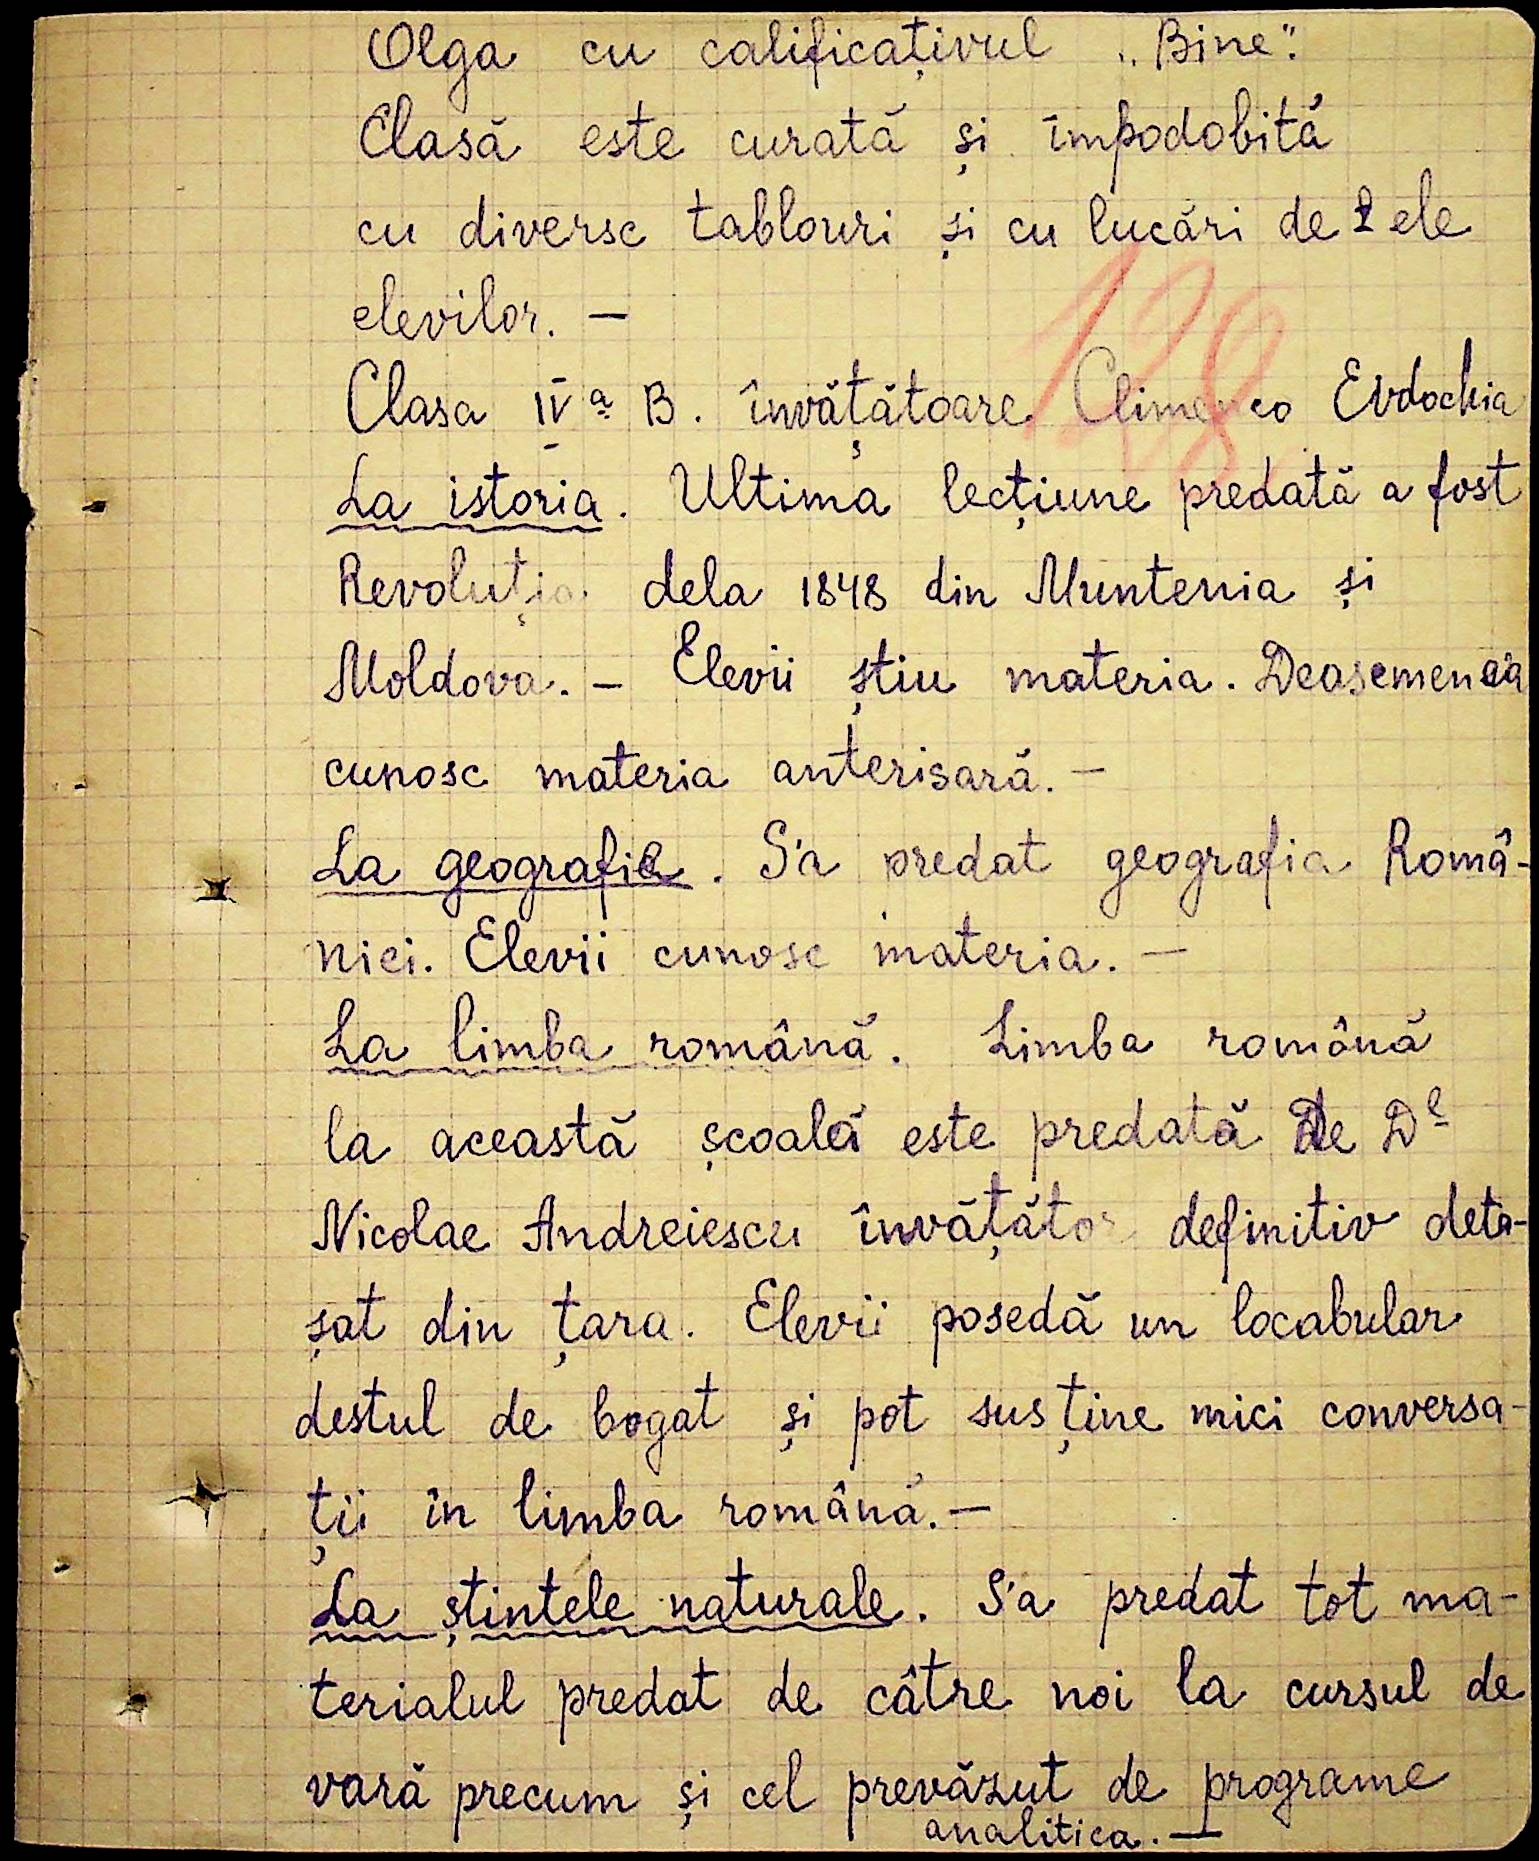 Olga cu calificațivul „Bine".
Clasă este curată și împodobită
cu diverse tablouri și cu lucări de ele
elevilor. —
128
Clasa IV a B. învățătoare Climenco Evdochia
La istoria. Ultima lecțiune predată a fost
Revoluția dela 1848 din Muntenia și
Moldova. — Elevii știu materia. Deasemenea
cunosc materia anterisară. —
La geografie. S'a predat geografia Romî-
niei. Elevii cunosc materia. —
La limba română. Limba română
la această școală este predată de Dl
Nicolae Andreiescu învățător definitiv deta-
șat din țara. Elevii posedă un locabular
destul de bogat și pot susține mici conversa-
ții în limba română. —
La știntele naturale. S'a predat tot ma-
terialul predat de câtre noi la cursul de
vară precum și cel prevăzut de programe
analitica. —